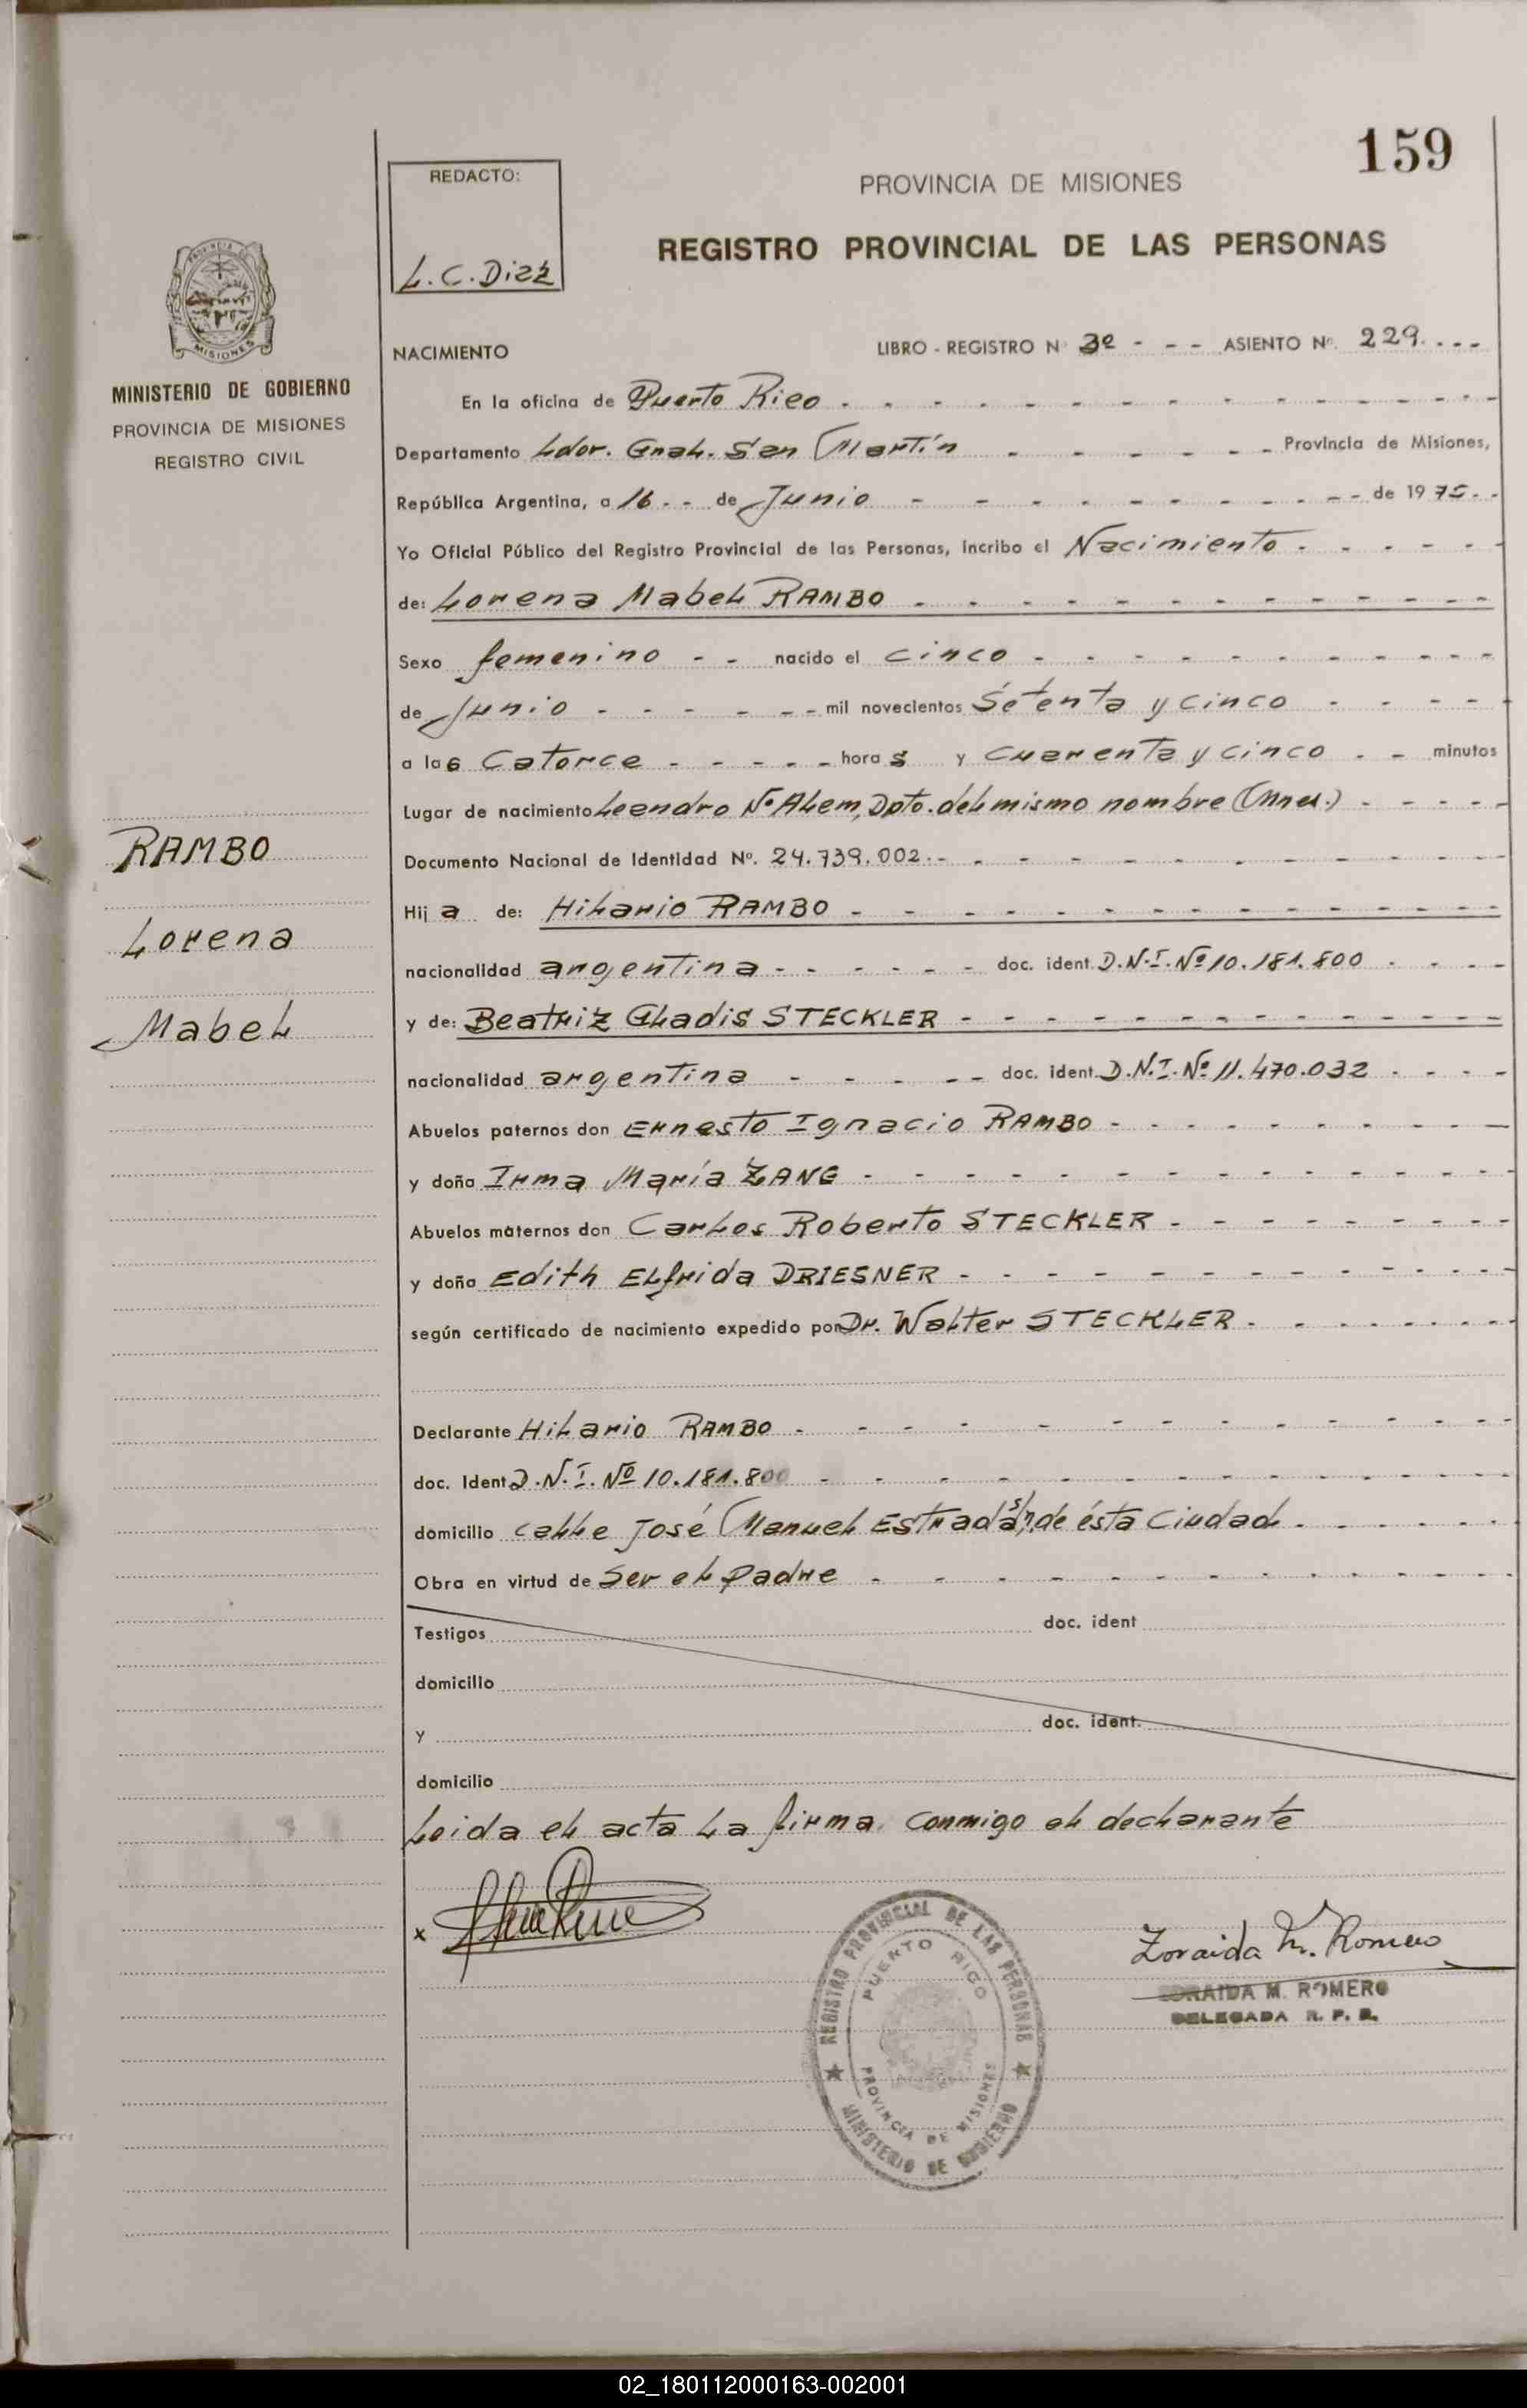 159
REDACTO:
L.C.Diaz
PROVINCIA DE MISIONES
REGISTRO PROVINCIAL DE LAS PERSONAS
PROVINCIA
MISIONES
MINISTERIO DE GOBIERNO
PROVINCIA DE MISIONES
REGISTRO CIVIL
NACIMIENTO LIBRO - REGISTRO Nº 3º - - - ASIENTO Nº. 229. - - -
En la oficina de Puerto Rico
Departamento Ldor. Gnal. San Martín Provincia de Misiones,
República Argentina, a 16 - - de Junio de 1975 - -
Yo Oficial Público del Registro Provincial de las Personas, incribo el Nacimiento
de: Lorena Mabel RAMBO
Sexo femenino - - nacido el cinco
de Junio mil novecientos Setenta y cinco
a las Catorce horas y cuarenta y cinco - - minutos
Lugar de nacimiento Leandro N. Alem, Dpto. del mismo nombre (Mnes.)
Documento Nacional de Identidad Nº. 24.739.002.-
RAMBO
Lorena
Mabel
Hija de: Hilario RAMBO
nacionalidad argentina doc. ident. D.N.I. Nº 10.181.800
y de: Beatriz Gladis STECKLER
nacionalidad argentina doc. ident. D.N.I. Nº 11.470.032
Abuelos paternos don Ernesto Ignacio RAMBO
y doña Irma María ZANG
Abuelos maternos don Carlos Roberto STECKLER
y doña Edith Elfrida DRIESNER
según certificado de nacimiento expedido por Dr. Walter STECKLER
Declarante Hilario RAMBO
doc. Ident D.N.I. Nº 10.181.800
domicilio calle José Manuel Estrada s/n, de ésta Ciudad
Obra en virtud de Ser el padre
Testigos doc. ident
domicilio
y doc. ident.
domicilio
Leida el acta la firma conmigo el declarante
x
REGISTRO PROVINCIAL DE LAS PERSONAS
PUERTO RICO
PROVINCIA DE MISIONES
MINISTERIO DE GOBIERNO
Zoraida M. Romero
ZORAIDA M. ROMERO
DELEGADA R. P. P.
02_180112000163-002001